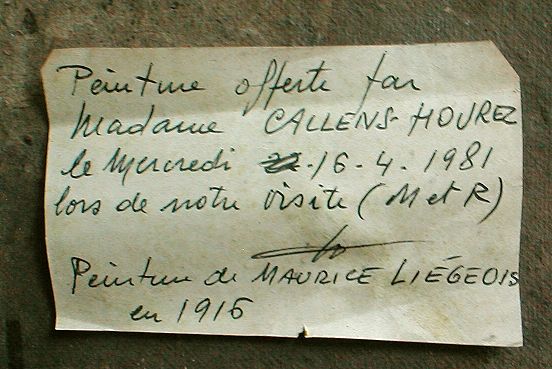 Peinture offerte par
Madame CALLENS-HOUREZ
le Mercredi 16-4-1981
lors de notre visite (M et R)
Peinture de MAURICE LIÉGEOIS
en 1916